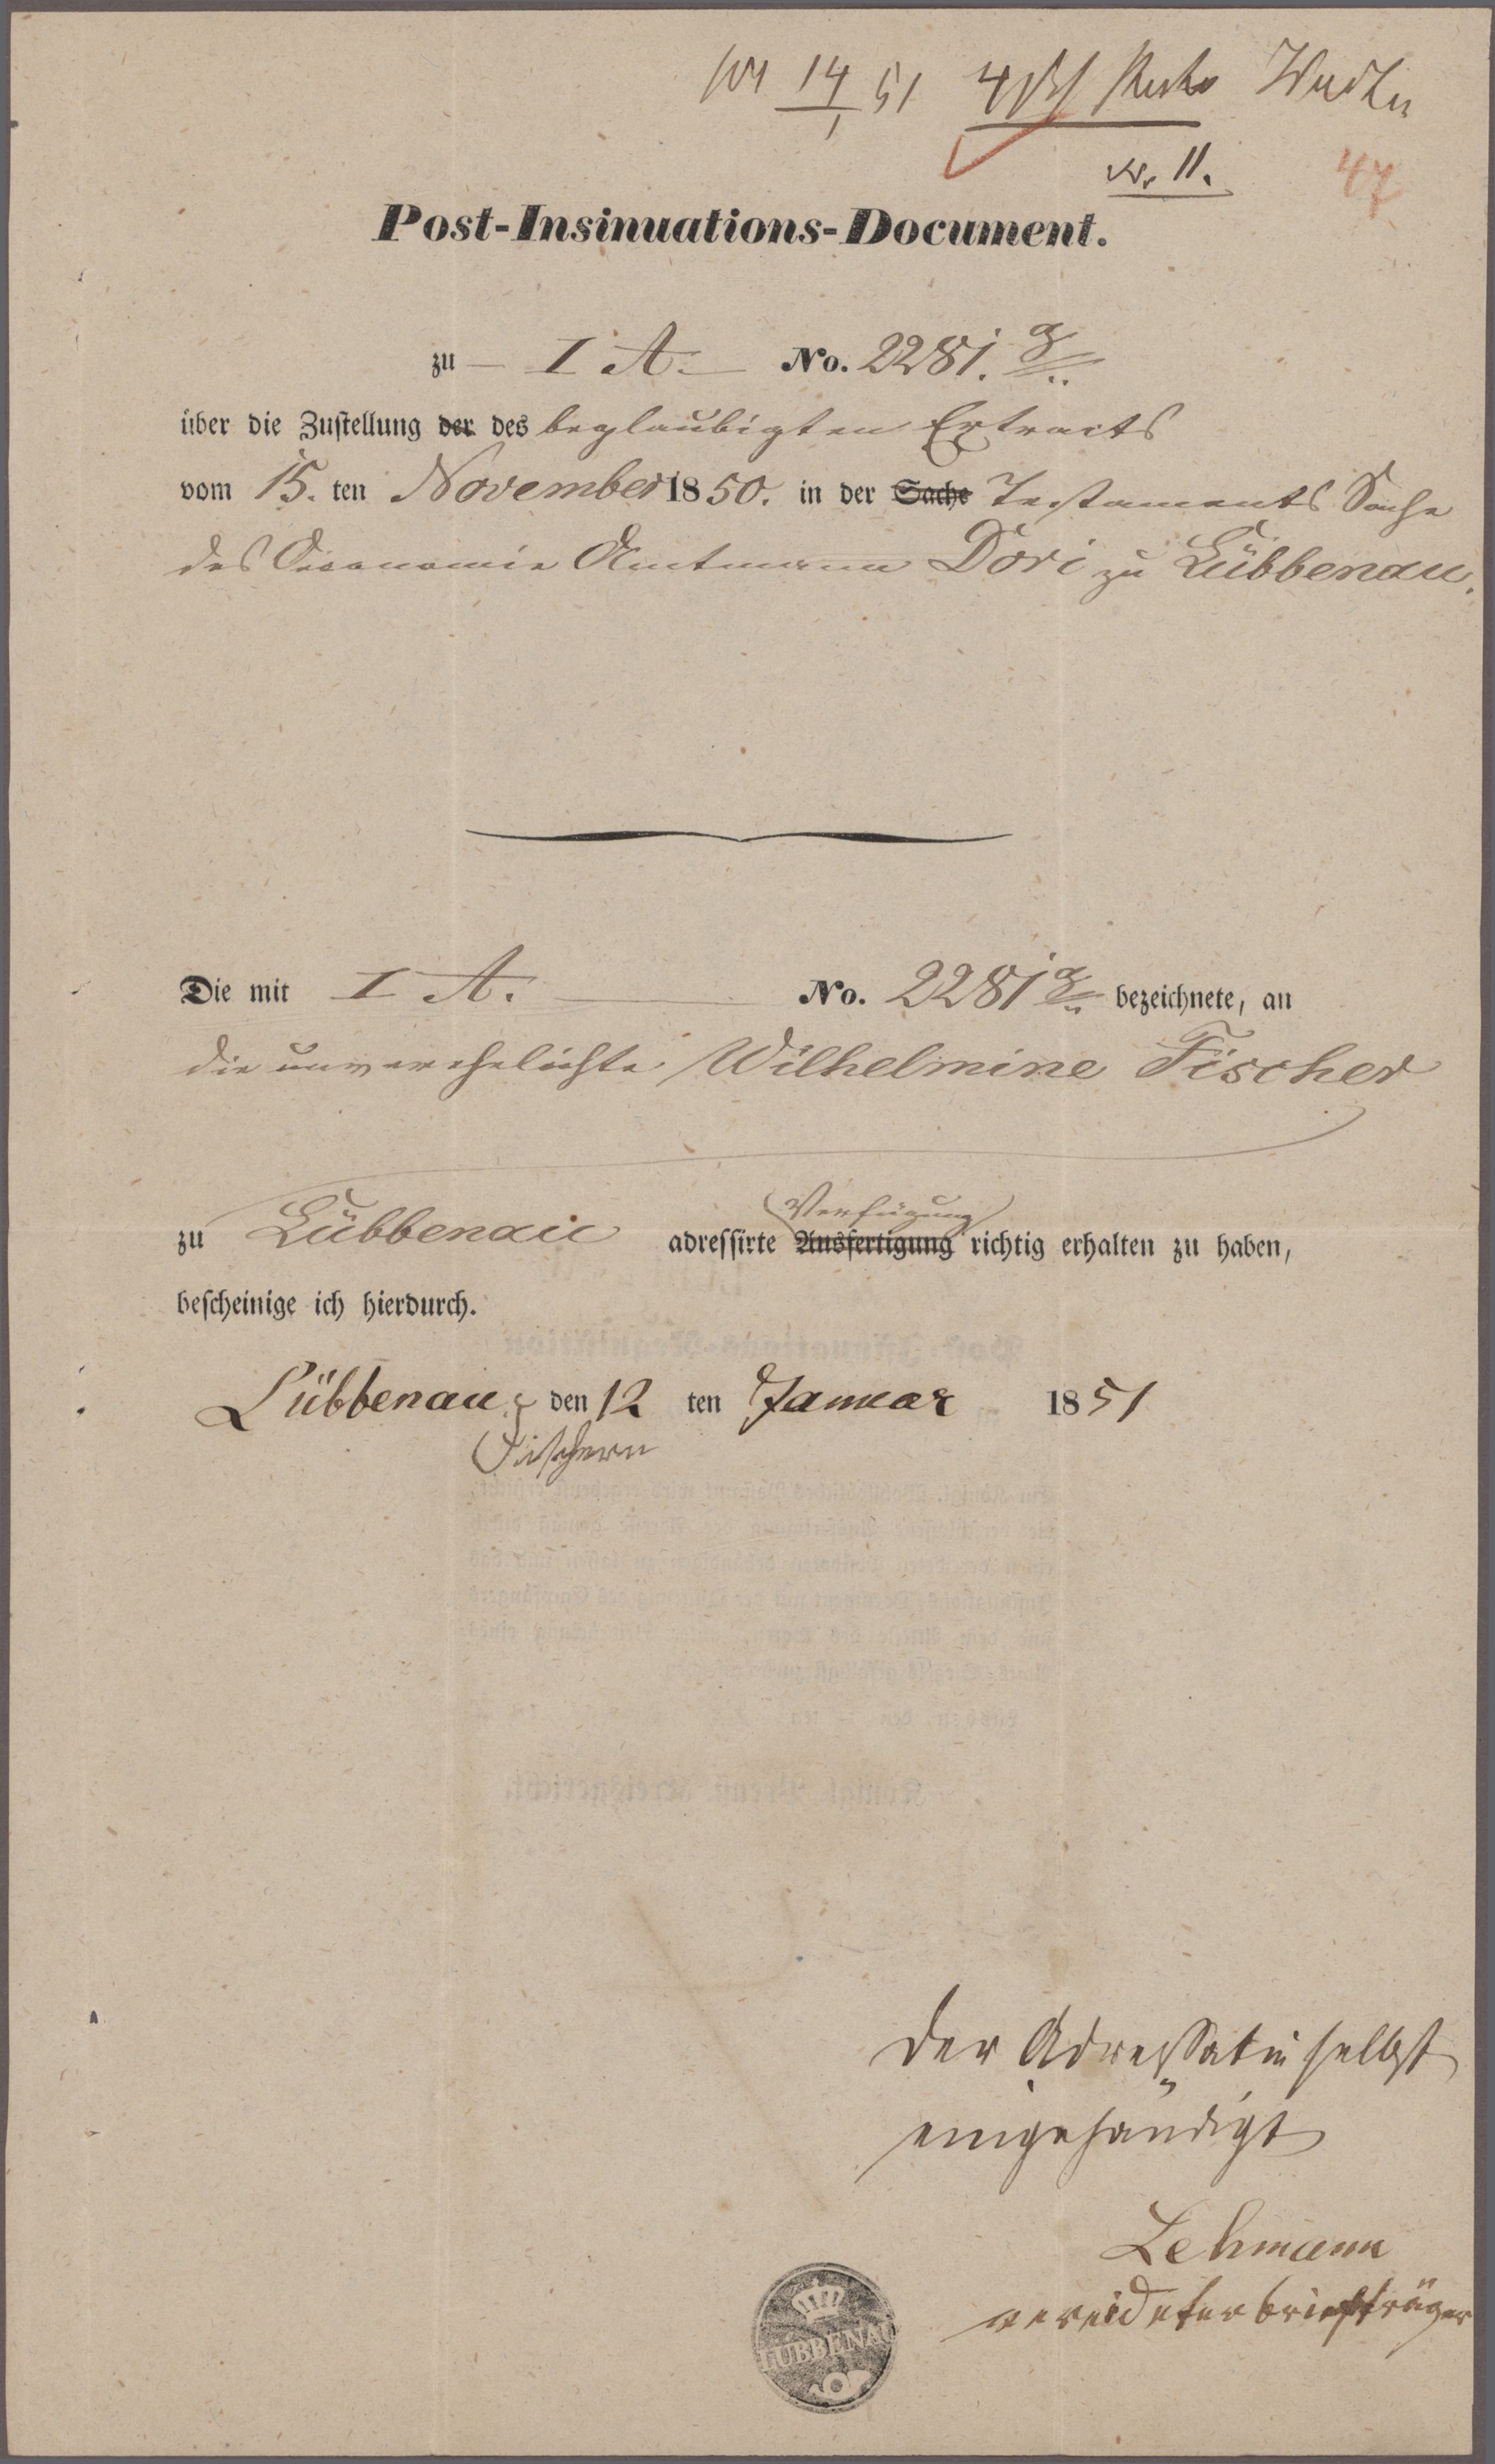 14/1 51
11.
47
Post-Insinuations-Document.
zu — I A. — No. 2281.
über die Zustellung der des beglaubigten Extracts
vom 15. ten November 1850. in der Sache Testaments Sache
des Oeconomie Amtmann Dori zu Lübbenau.
Die mit I A. No. 2281 bezeichnete, an
die unverehelichte Wilhelmine Fischer
Verfügung
zu Lübbenau adressirte Ausfertigung richtig erhalten zu haben,
bescheinige ich hierdurch.
Lübbenau, den 12 ten Januar 1851
Fischern
Der Adressatin selbst
eingehändigt
Lehmann
vereideter briefträger
LÜBBENAU